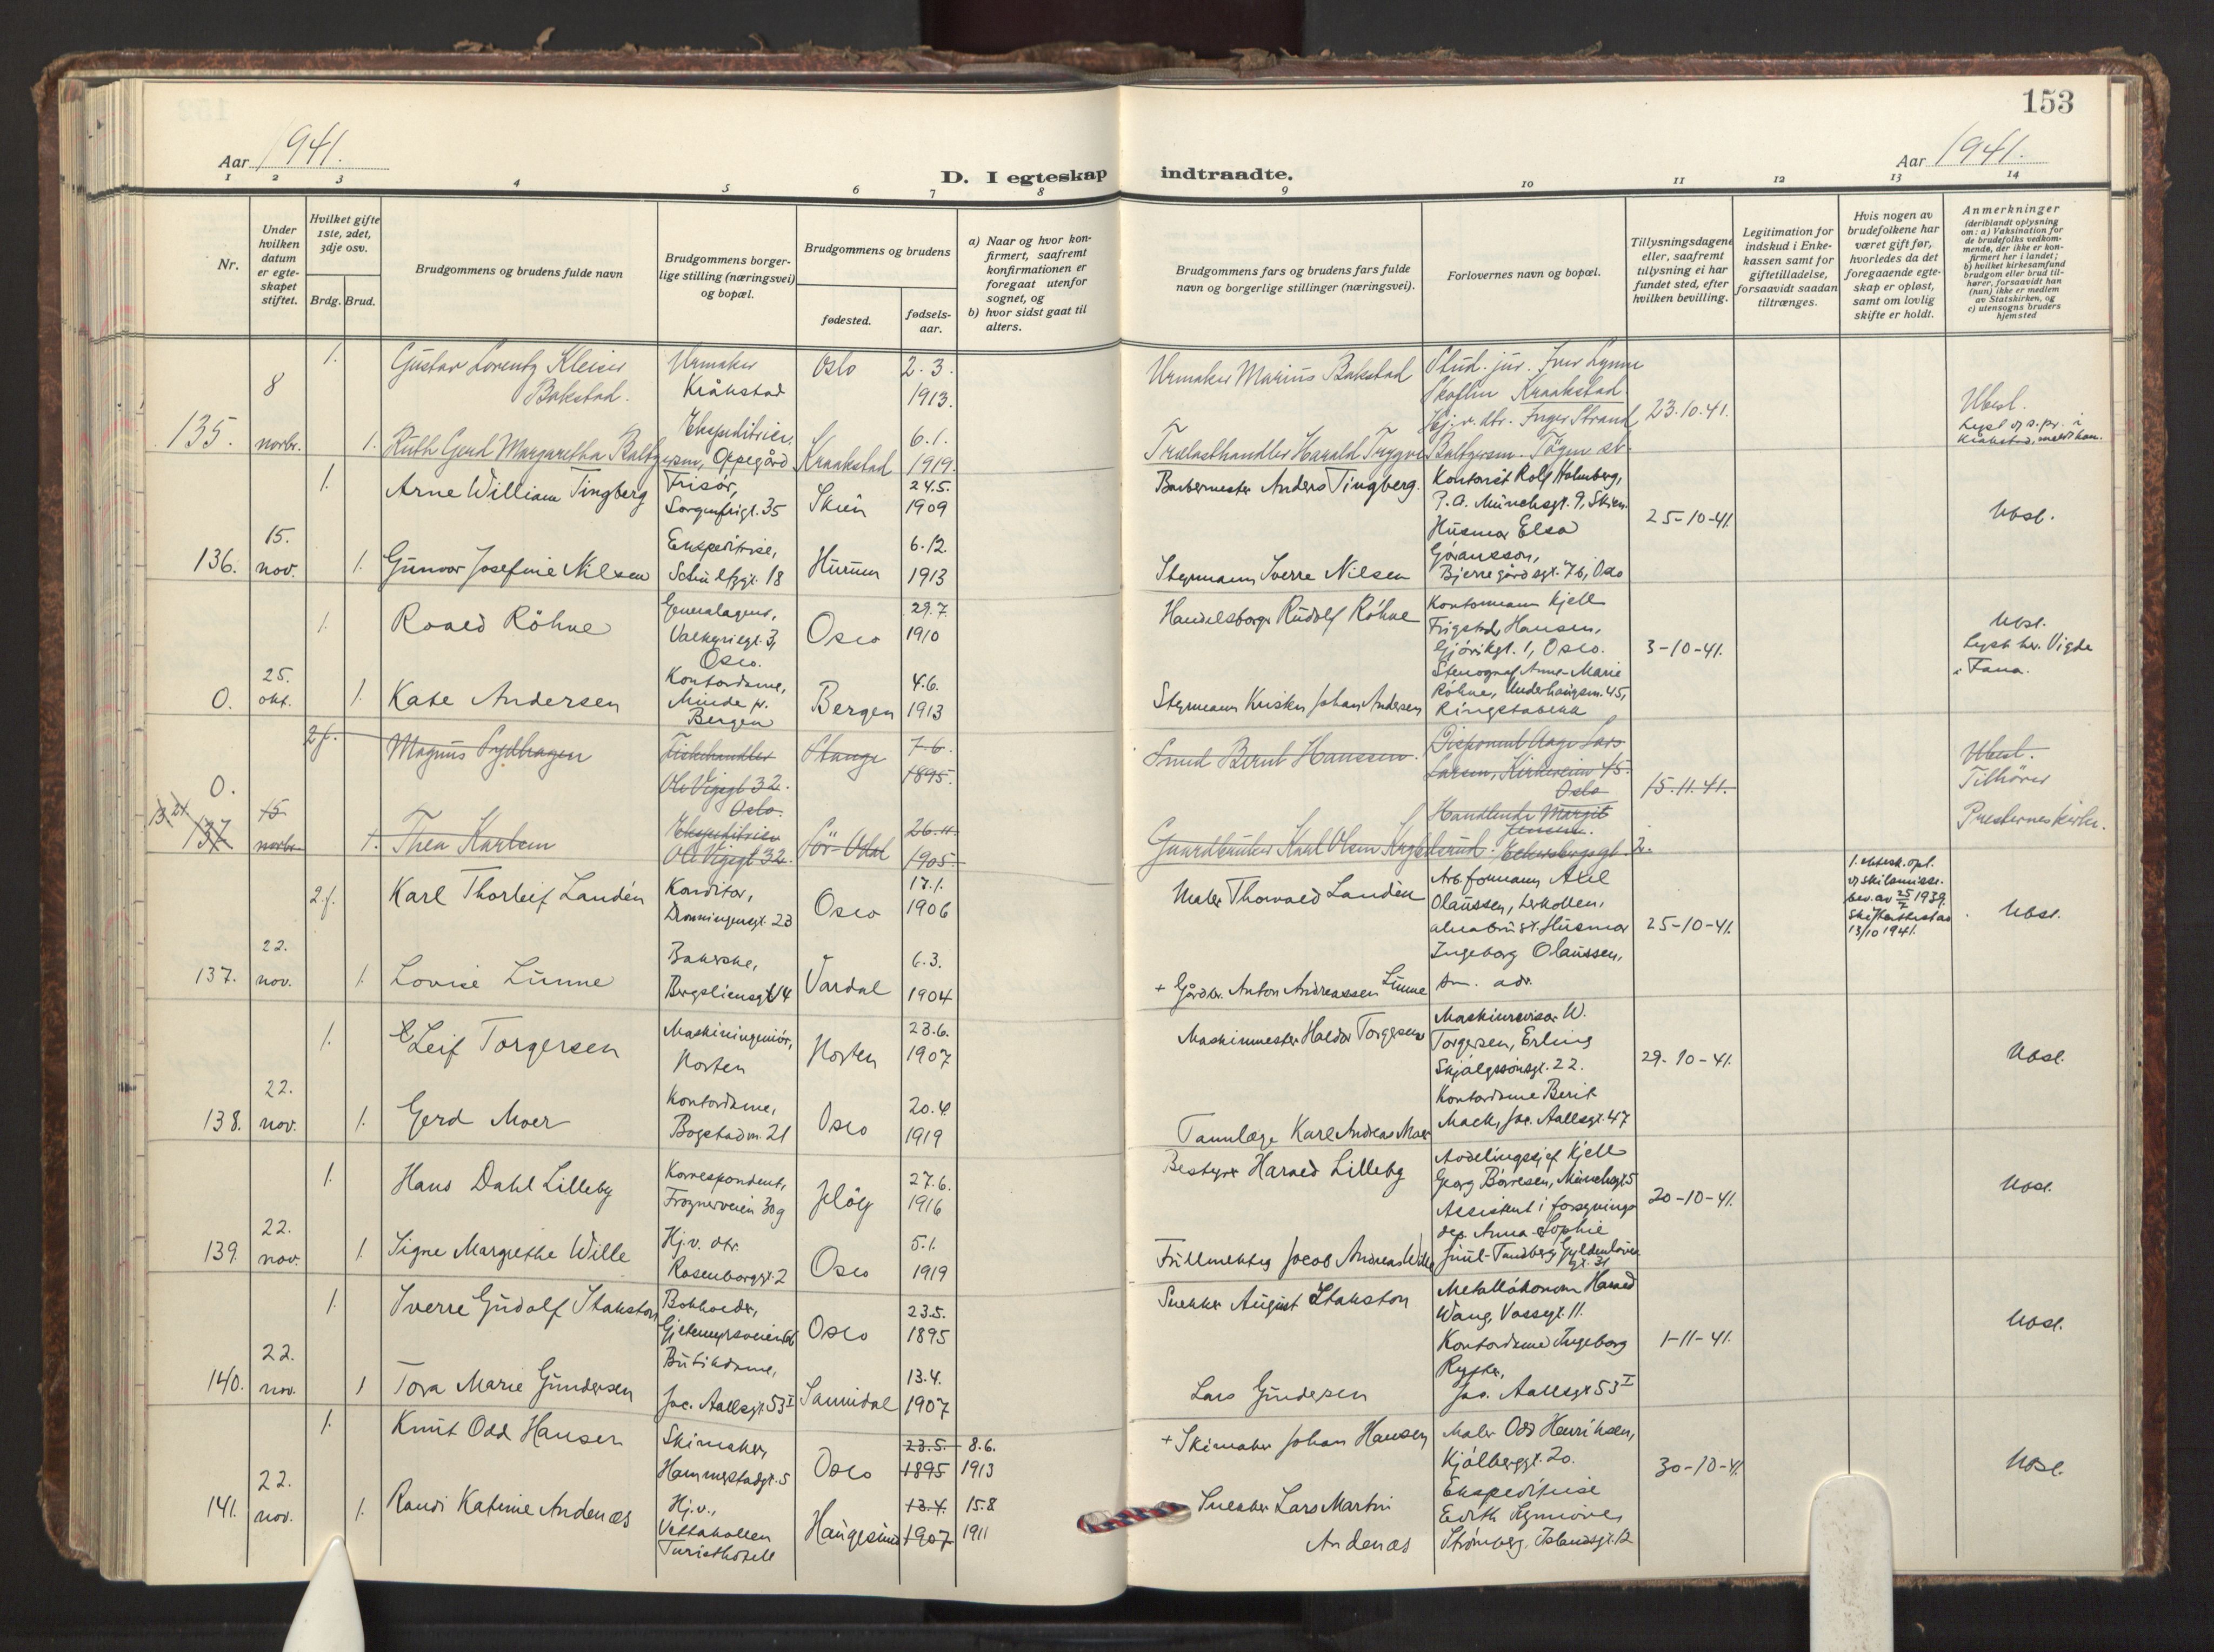 153
Aar 1941.
D. I egteskap indtraadte.
Aar 1941.
1 2 3 4 5 6 7 8 9 10 11 12 13 14
Nr.
Under
hvilken
datum
er egte-
skapet
stiftet.
Hvilket gifte
1ste, 2det,
3dje osv.
Brdg. Brud.
Brudgommens og brudens fulde navn
Brudgommens borger-
lige stilling (næringsvei)
og bopæl.
Brudgommens og brudens
fødested.
fødsels-
aar.
a) Naar og hvor kon-
firmert, saafremt
konfirmationen er
foregaat utenfor
sognet, og
b) hvor sidst gaat til
alters.
Brudgommens fars og brudens fars fulde
navn og borgerlige stillinger (næringsvei).
Forlovernes navn og bopæl.
Tillysningsdagene
eller, saafremt
tillysning ei har
fundet sted, efter
hvilken bevilling.
Legitimation for
indskud i Enke-
kassen samt for
giftetilladelse,
forsaavidt saadan
tiltrænges.
Hvis nogen av
brudefolkene har
været gift før,
hvorledes da det
foregaaende egte-
skap er opløst,
samt om lovlig
skifte er holdt.
Anmerkninger
(deriblandt oplysning
om: a) Vaksination for
de brudefolks vedkom-
mende, der ikke er kon-
firmert her i landet;
b) hvilket kirkesamfund
brudgom eller brud til-
hører, forsaavidt han
(hun) ikke er medlem
av Statskirken, og
c) utensogns bruders
hjemsted
135.
8
novbr.
1.
Gustav Lorentz Kleiser
Bakstad.
Urmaker
Kråkstad
Oslo
2. 3.
1913.
Urmaker Marius Bakstad
Stud. jur.
Kraakstad.
1.
Ruth Gerd Margaretha Baltzersen,
Ekspeditrise,
Oppegård
Kraakstad
6. 1.
1919.
Trælasthandler Harald Trygve Baltzersen.
Hj. v. dtr. Inger Strand,
23.10.41.
Ubesl.
Lyst
136.
15.
nov.
1.
Arne William Tingberg
Frisør,
Sorgenfrigt. 35
Skien
24.5.
1909
Barbermester Anders Tingberg.
Kontorist Rolf Holmberg,
P. A. Munchsgt. 9, Skien.
25-10-41.
Ubsl.
1.
Gunvor Josefine Nilsen
Ekspeditrise,
Schultzgt. 18
Hurum
6.12.
1913
Styrmann Sverre Nilsen
Husmor Elsa
Gøransson,
Bjerregårdsgt. 76, Oslo
0.
25.
okt.
1.
Roald Röhne
Generalagent,
Valkyriegt. 3,
Oslo.
Oslo
29.7.
1910
Handelsborger Rudolf Röhne
Kontormann Kjell
Frigstad Hansen,
Gjøvikgt. 1, Oslo.
3-10-41.
Ubsl.
Lyst her. Vigde
i Fana.
1.
Kate Andersen
Kontordame,
Minde pr.
Bergen
Bergen
4.6.
1913
Styrmann Kristen Johan Andersen
Stenograf Anne-Marie
Röhne, Underhaugsvn. 45,
Ringstabekk
0.
137
15
novbr.
2 f.
Magnus Sydhagen
Fiskehandler
Ole Vigsgt 32.
Oslo.
Stange
7-6.
1895.
Smed Bernt Hanssen.
Disponent Aage Lars
Larsen, Kirkeveien 45.
Oslo
15.11.41.
Ubesl.
Tilhörer
Presterneskirke.
1.
Thea Karlsen
Ekspeditrise
Ole Vigsgt 32.
Sør-Odal
26.11.
1905.
Gaardbruker Karl Olsen
Handlende Margit
Jensen.
137.
22.
nov.
2 f.
Karl Thorleif Landén
Konditor,
Dronningensgt. 23
Oslo
17.1.
1906
Maler Thorvald Landén
Arb.formann Axel
Olaussen,
Husmor
Ingeborg Olaussen,
sm. adr.
25-10-41.
1. ektesk. opl.
v/ skilsmisse.
bev. av 25/7 1939.
Skifteattest av
13/10 1941.
Ubsl.
1.
Lovise Lunne
Bakerske,
Bergsliensgt. 14
Vardal
6.3.
1904
+ Gårdbr. Anton Andreassen Lunne
138.
22.
nov.
1.
Leif Torgersen
Maskiningeniør,
Horten
Horten
23.6.
1907
Maskinmester Haldor Torgersen
Maskinrevisor W.
Torgersen, Erling
Skjalgssønsgt. 22.
29-10-41.
Ubsl.
1.
Gerd Moer
Kontordame,
Bogstadvn. 21
Oslo
20.4.
1919
Tannlæge Karl Andreas Moer
Kontordame Berit
Mack, Jac. Aallsgt. 47
139.
22.
nov.
1.
Hans Dahl Lilleby
Korrespondent,
Frognerveien 30g
Jeløy
27.6.
1916
Bestyrer Harald Lilleby
Avdelingssjef Kjell
Georg Børresen, Munchsgt. 5
20-10-41.
Ubsl.
1.
Signe Margrethe Wille
Hj.v. dtr.
Rosenborggt. 2
Oslo
5.1.
1919
Fullmektig Jacob Andreas Wille
Assistent i forsynings
dep. Anna-Sophie
Juul-Tandberg, Gyldenløves
gt. 31
140.
22.
nov.
1.
Sverre Gudolf Stakston
Bokholder,
Gjetemyrsveien
Oslo
23.5.
1895
Snekker August Stakston
Metalløkonom Harald
Wang, Vossegt. 11.
1-11-41.
Ubsl.
1
Tora Marie Gundersen
Butikdame,
Jac. Aallsgt. 53 I
Sannidal
13.4.
1907
Lars Gundersen
Kontordame Ingeborg
Rytter,
Jac. Aallsgt 53 I
141.
22.
nov.
1.
Knut Odd Hansen
Skimaker,
Hammerstadgt. 5
Oslo
23.5. 8.6.
1895 1913
+ Skimaker Johan Hansen
Maler Odd Henriksen,
Kjølberggt. 20.
30-10-41.
Ubsl.
1.
Randi Katinie Andenæs
Hj.v.,
Vettakollen
Turisthotell
Haugesund
13.4. 15.8
1907 1911
Snekker Lars Martin
Andenæs
Ekspeditrise
Edith Synnøve
Strømberg, Islandsgt. 12